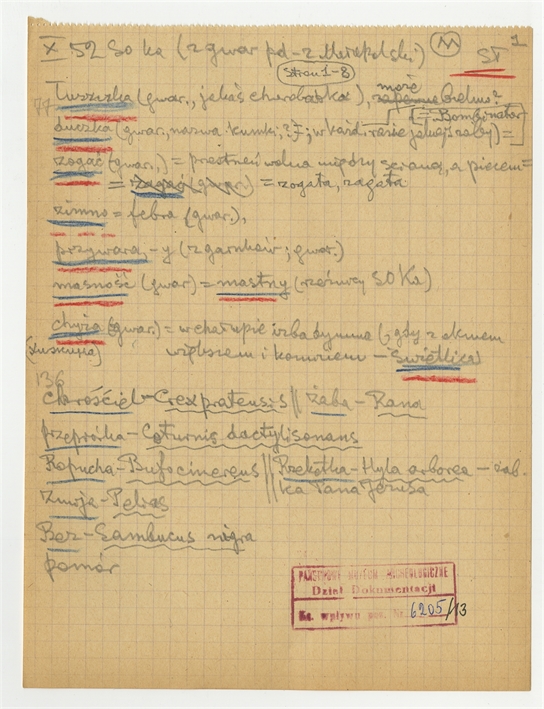 X 52 So ka (z gwar pd-z Małopolski) M ST 1
Stron 1-8
Łuszczka (gwar., jakaś chorobaska), może
zapewne bielmo?
77 duczka (gwar, nazwa kumki, ?; w każd. razie jakiejś żaby) = [= Bombinator]
zogać (gwar.,) = przestrzeń wolna między ścianą, a piecem =
= zogać (gwar.) = zogata, zagata
zimno = febra (gwar.),
przywara, -y (z garnków; gwar.)
masność (gwar) = mastny (rzeźwy SO Ka)
chyża (gwar.) = w chałupie izba dymna (, gdy z oknem
większem i kominem - Świetlica)
136
chrościel - Crex pratensis || żaba - Rana
przepiórka - Coturnix dactylisonans
Ropucha - Bufo cinereus || Rzekotka - Hyla arborea - żab-
ka Pana Jezusa
Żmija - Pelias
Bez - Sambucus nigra
pomór
PAŃSTWOWE MUZEUM ARCHEOLOGICZNE
Dział Dokumentacji
Kt. wpływu poz. Nr 6205/13